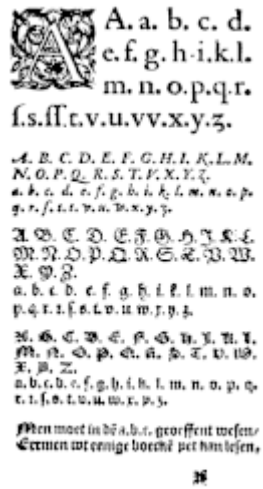 A A. a. b. c. d.
e. f. g. h. i. k. l.
m. n. o. p. q. r.
ſ. s. ſſ. t. v. u. vv. x. y. z.
A. B. C. D. E. F. G. H. I. K. L. M.
N. O. P. Q. R. S. T. V. X. Y. Z.
a. b. c. d. e. f. g. h. i. k. l. m. n. o. p.
q. r. ſ. s. t. v. u. w. x. y. z.
A. B. C. D. E. F. G. H. I. K. L.
M. N. O. P. Q. R. S. T. V. W.
X. Y. Z.
a. b. c. d. e. f. g. h. i. k. l. m. n. o.
p. q. r. ſ. s. t. v. u. w. x. y. z.
A. B. C. D. E. F. G. H. I. K. L.
M. N. O. P. Q. R. S. T. V. W.
X. Y. Z.
a. b. c. d. e. f. g. h. i. k. l. m. n. o. p. q.
r. ſ. s. t. v. u. w. x. y. z.
Men moet in dẽ a. b. c. geoeffent weſen/
Eermen tot eenige boeckẽ yet kan leſen,